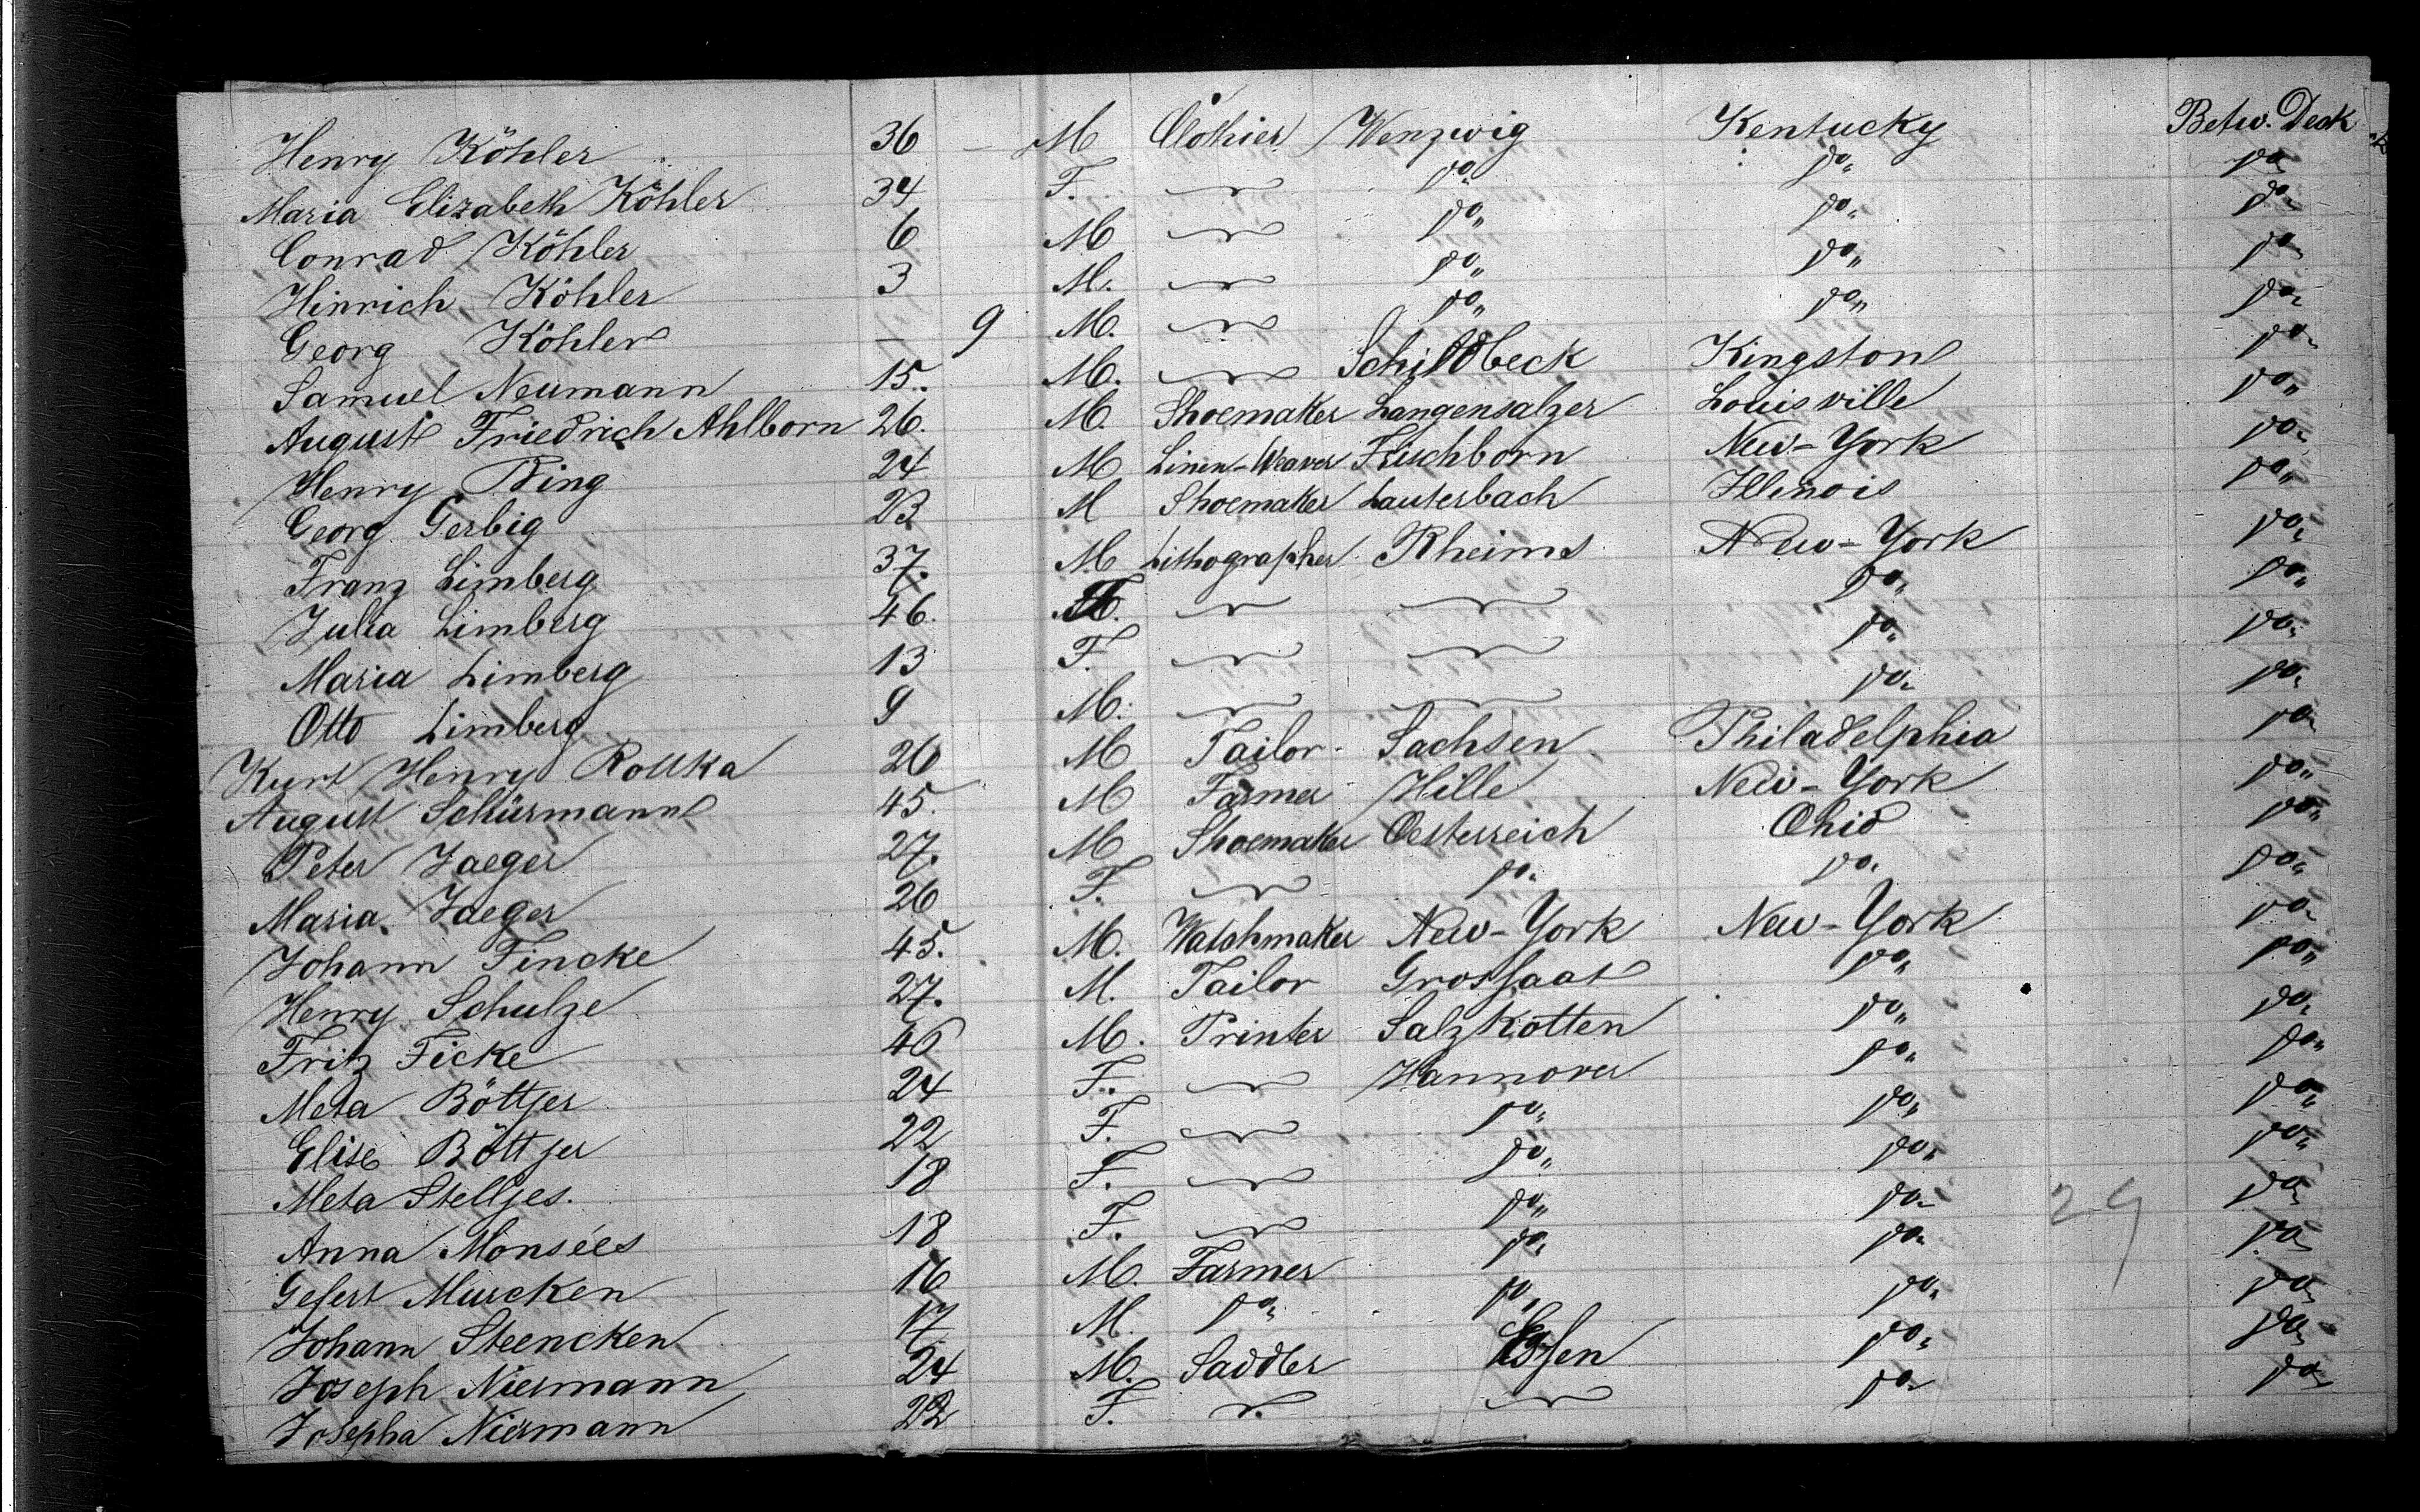 Henry Köhler 36 – M Clothier Wenzwig Kentucky Betw. Deck
Maria Elizabeth Köhler 34 F. — do. do. do.
Conrad Köhler 6 M — do. do. do.
Hinrich Köhler 3 M. — do. do. do.
Georg Köhler – 9 M. — do. do. do.
Samuel Neumann 15. M. — Schildbeck Kingston do.
August Friedrich Ahlborn 26. M. Shoemaker Langensalzer Louisville do.
Henry Bing 24 M Linen-Weaver Fischborn New-York do.
Georg Gerbig 23 M Shoemaker Lauterbach Illinois do.
Franz Limberg 37. M Lithographer Rheims New-York do.
Julia Limberg 46. F. — — do. do.
Maria Limberg 13 F. — — do. do.
Otto Limberg 9 M. — — do. do.
Kurt Henry Rottka 26 M Tailor Sachsen Philadelphia do.
August Schürmann 45. M Farmer Hille New-York do.
Peter Jaeger 27. M Shoemaker Oesterreich Ohio do.
Maria Jaeger 26 F. — do. do. do.
Johann Fincke 45. M. Watchmaker New-York New-York do.
Henry Schulze 27. M. Tailor Grossaat do. do.
Fritz Ficke 46 M. Printer Salzkotten do. do.
Meta Böttjer 24 F. — Hannover do. do.
Elise Böttjer 22 F. — do. do. do.
Meta Stelljes. 18 F. — do. do. do.
Anna Monsees 18 F. — do. do. do.
Gefert Murcken 16 M. Farmer do. do. do.
Johann Steencken 17. M. do. do. do. do.
Joseph Niermann 24 M. Saddler Essen do. do.
Josepha Niermann 22 F. — — do. do.
29